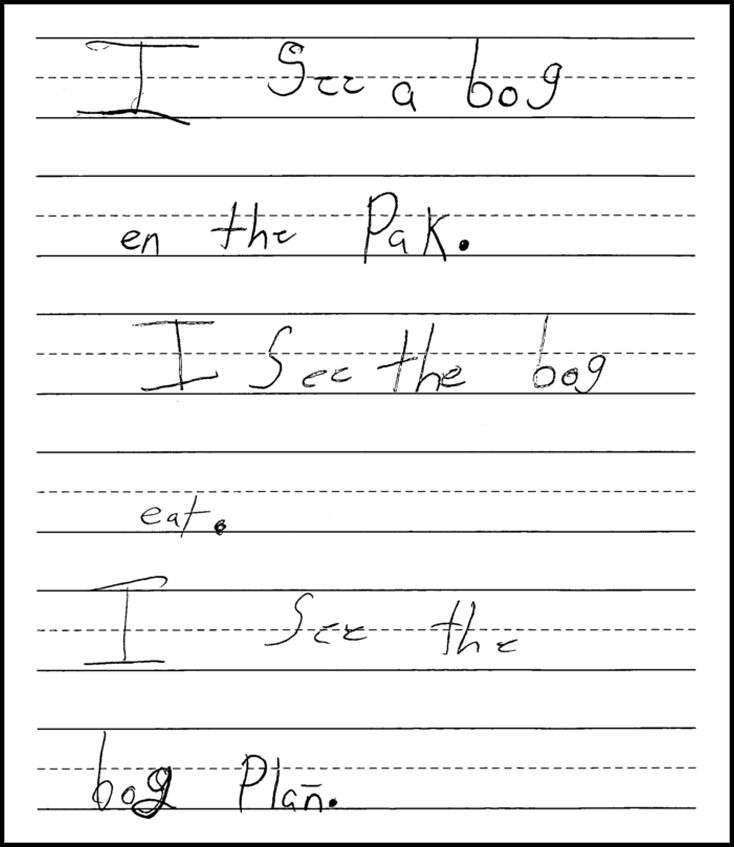 I See a bog
en the Pak.
I See the bog
eat.
I See the
bog Plan̄.